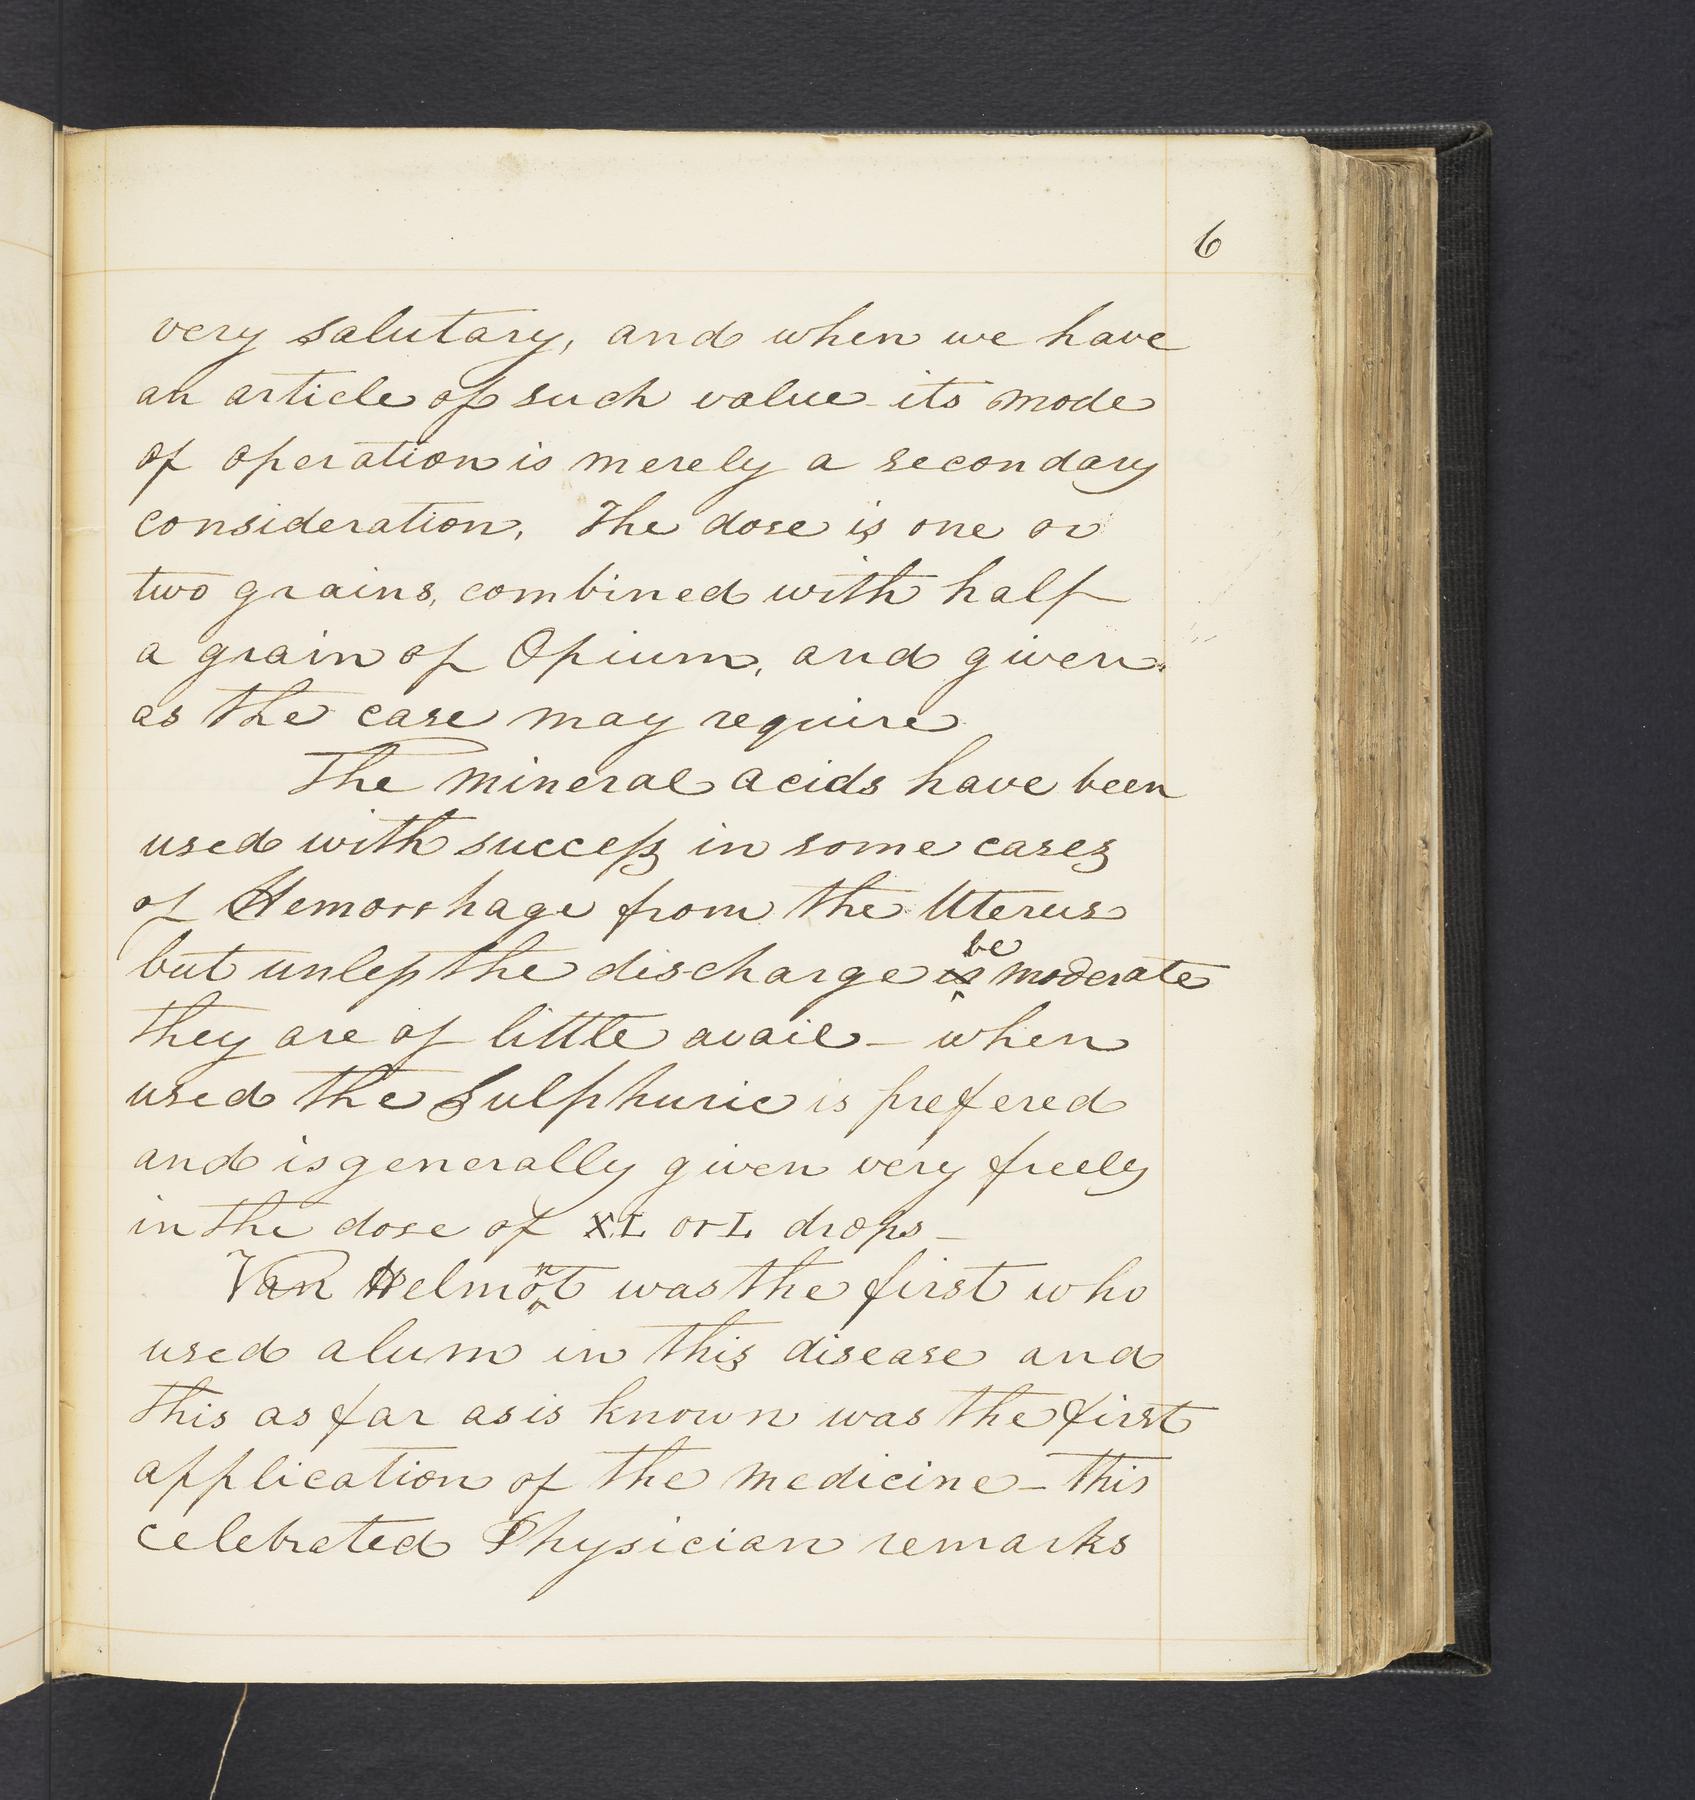 6
very salutary, and when we have
an article of such value - its mode
of operation is merely a secondary
consideration. The dose is one or
two grains, combined with half
a grain of Opium, and given
as the case may require
The mineral acids have been
used with success in some cases
of Hemorrhage from the Uterus
but unless the discharge is be moderate
they are of little avail - when
used the Sulphuric is prefered
and is generally given very freely
in the dose of XL or L drops -
Van Helmont was the first who
used alum in this disease and
this as far as is known was the first
application of the medicine - this
celebrated Physician remarks